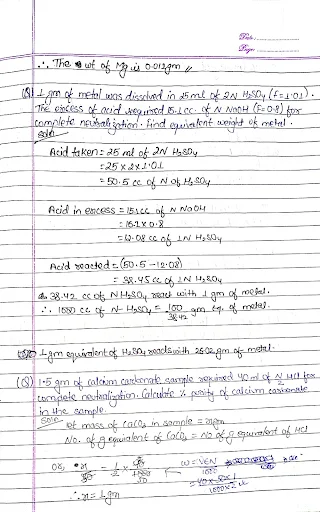 Date
Page
∴ The wt of Mg is 0.012gm
(Q) 1 gm of metal was dissolved in 25 ml of 2N H₂SO₄ (f=1.01).
The excess of acid required 15.1 cc. of N NaOH (F=0.8) for
complete neutralization. Find equivalent weight of metal.
Soln:
Acid taken = 25 ml of 2N H₂SO₄
= 25 x 2 x 1.01
= 50.5 cc of N of H₂SO₄
Acid in excess = 15.1 cc of N NaOH
= 15.1 x 0.8
= 12.08 cc of 1N H₂SO₄
Acid reacted = (50.5 - 12.08)
= 38.45 cc of 1N H₂SO₄
38.42 cc of N H₂SO₄ react with 1 gm of metal.
∴ 1000 cc of N-H₂SO₄ = 100/38.42 gm eq. of metal.
1 gm equivalent of H₂SO₄ reacts with 26.02 gm of metal.
(Q) 1.5 gm of calcium carbonate sample required 40 ml of N/2 HCl for
complete neutralization. Calculate % purity of calcium carbonate
in the sample.
Soln:
let mass of CaCO₃ in sample = x gm
No. of g equivalent of CaCO₃ = No of g equivalent of HCl
or, x/50 = 1/2 x 40/1000 W = VEN/1000
= 40 x 50 x 1/1000 x 2
∴ x = 1 gm